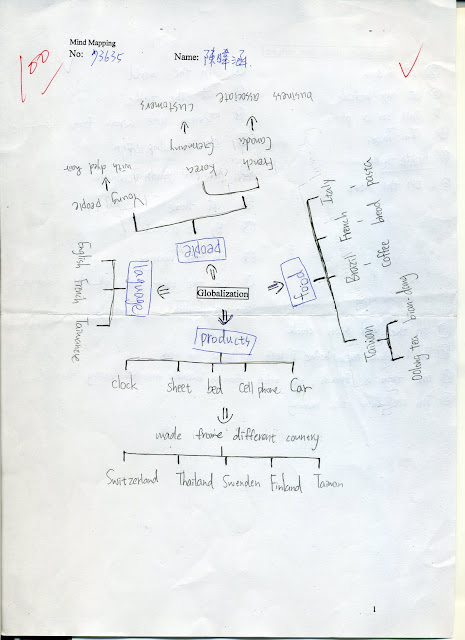 Mind Mapping
No: 93635
Name:
100
business associate
customers
Canada
Germany
French
Korea
with dyed hair
Young people
people
English
French
Taiwanese
laguage
Globalization
food
Italy
French
Brazil
Taiwan
pasta
bread
coffee
bian-dang
oolong tea
products
clock sheet bed cell phone Car
made frome different counery
Switzerland Thailand Swenden Finland Taiwan
1